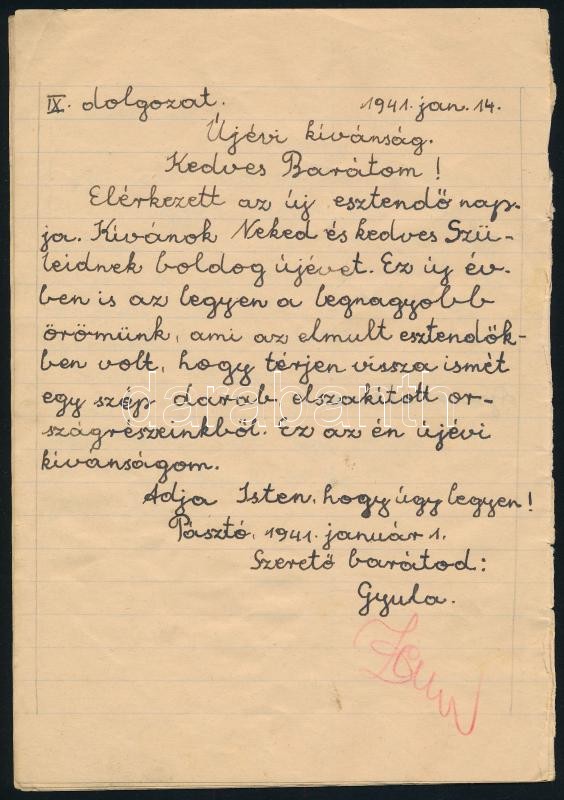 IX. dolgozat. 1941. jan. 14.
Újévi kívánság.
Kedves Barátom!
Elérkezett az új esztendő nap-
ja. Kívánok Neked és kedves Szü-
leidnek boldog újévet. Ez új év-
ben is az legyen a legnagyobb
örömünk, ami az elmult esztendők-
ben volt, hogy térjen vissza ismét
egy szép darab elszakított or-
szágrészeinkből. Ez az én újévi
kívánságom.
Adja Isten, hogy úgy legyen!
Pásztó, 1941. január 1.
Szerető barátod:
Gyula.
darabanth